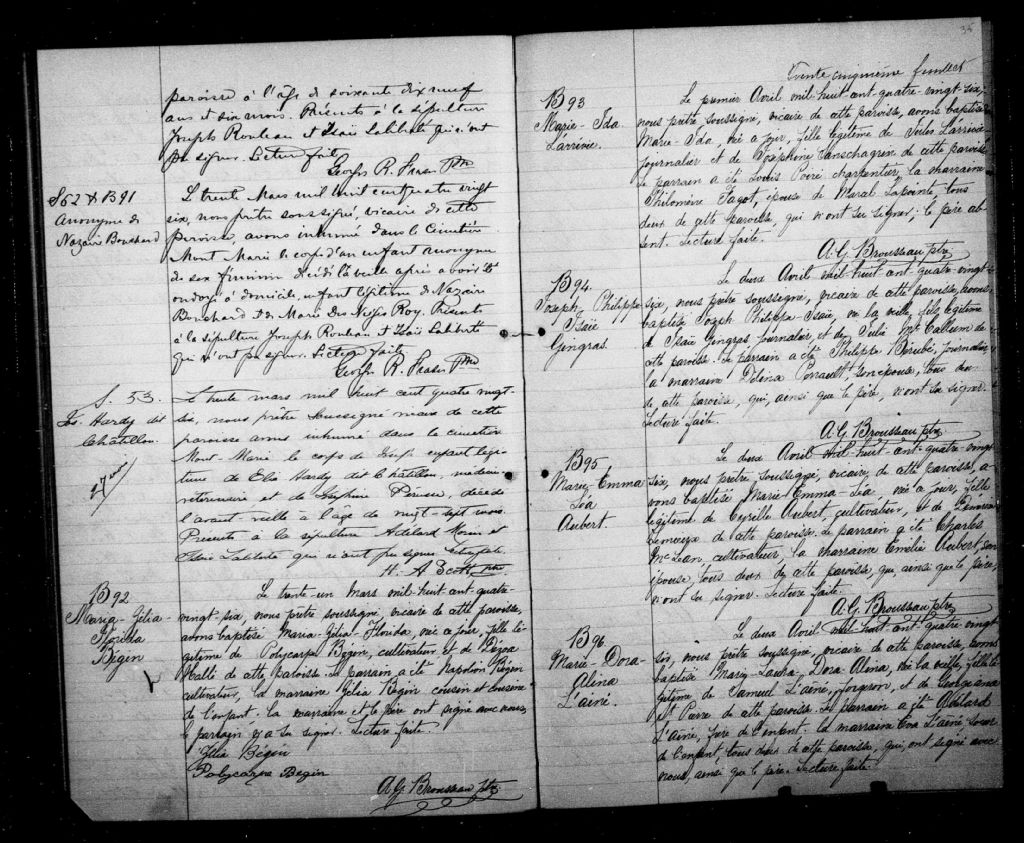 paroisse à l'âge de soixante dix neuf
ans et six mois. Présents à la sépulture
Joseph Rouleau et Isaïe Laliberté qui n'ont
pu signer. Lecture faite
Geoffs R. Fraser Ptre
S52 & B91
Anonyme de
Nazaire Bouchard
Le trente Mars mil huit cent quatre vingt
six, nous prêtre soussigné, vicaire de cette
paroisse, avons inhumé dans le Cimetière
Mont Marie le corps d'un enfant anonyme
de sexe féminin décédé la veille après avoir été
ondoyé à domicile, enfant légitime de Nazaire
Bouchard & de Marie Des Neiges Roy. Présents
à la sépulture Joseph Rouleau et Isaïe Laliberté
qui n'ont pu signer. Lecture faite
Geoffs R. Fraser Ptre
S. 53.
Jos. Hardy dit
Châtillon.
27 mois
Le trente mars mil huit cent quatre vingt-
six, nous prêtre soussigné vicaire de cette
paroisse avons inhumé dans le cimetière
Mont Marie le corps de Joseph enfant légi-
time de Elie Hardy dit Châtillon, médecin
vétérinaire et de Perusse, décédé
l'avant-veille à l'âge de vingt-sept mois.
Présents à la sépulture Adélard Morin et
Isaïe Laliberté qui n'ont pu signer. Lecture faite.
H. A. Scott ptre
B92
Maria-Gélia
Florida
Bégin
Le trente un Mars mil-huit-cent-quatre-
vingt-six, nous prêtre soussigné, vicaire de cette paroisse,
avons baptisé Maria-Gélia-Florida, née ce jour, fille lé-
gitime de Polycarpe Bégin, cultivateur et de
Hallé de cette paroisse. Le parrain a été Napoléon Bégin
cultivateur, la marraine Gélia Bégin cousin et cousine
de l'enfant. La marraine et le père ont signé avec nous,
le parrain n'a su signer. Lecture faite.
Gélia Bégin
Polycarpe Bégin
A. G. Brousseau ptre
35
Trente cinquième feuillet
B93
Marie-Ida
Larrivée.
Le premier Avril mil-huit-cent-quatre-vingt-six,
nous prêtre soussigné, vicaire de cette paroisse, avons baptisé
Marie-Ida, née ce jour, fille légitime de Jules Larrivée
journalier et de Joséphine Sanschagrin de cette paroisse
Le parrain a été Louis Poiré charpentier, la marraine
Philomène Fagot, épouse de Maral Lapointe, tous
deux de cette paroisse, qui n'ont su signer; le père ab-
sent. Lecture faite.
A. G. Brousseau ptre
B94.
Joseph, Philippe
Isaïe
Gingras.
Le deux Avril mil-huit-cent-quatre-vingt-
six, nous prêtre soussigné, vicaire de cette paroisse, avons
baptisé Joseph Philippe Isaïe, né la veille, fils légitime
de Isaïe Gingras, journalier, et de Julie McCallum de
cette paroisse. Le parrain a été Philippe Bérubé, journalier
la marraine Délina Perrault son épouse, tous deux
de cette paroisse, qui, ainsi que le père, n'ont su signer.
Lecture faite.
A. G. Brousseau ptre
B95
Marie-Emma
Léa
Aubert.
Le deux Avril mil-huit-cent-quatre-vingt
six, nous prêtre soussigné, vicaire de cette paroisse, a-
vons baptisé Marie-Emma-Léa, née ce jour, fille
légitime de Cyrille Aubert, cultivateur, et de
Lemieux de cette paroisse. Le parrain a été Charles
McLean, cultivateur, la marraine Emélie Aubert, son
épouse, tous deux de cette paroisse, qui, ainsi que le père,
n'ont su signer. Lecture faite.
A. G. Brousseau ptre
B96
Marie-Dora-
Alina
Lainé.
Le deux Avril mil-huit-cent-quatre-vingt
six, nous prêtre soussigné, vicaire de cette paroisse, avons
baptisé Marie-Laura-Dora-Alma, née la veille, fille lé-
gitime de Samuel Lainé, forgeron, et de Georgeanna
St Pierre de cette paroisse. Le parrain a été Adélard
Lainé, frère de l'enfant, la marraine Eva Lainé soeur
de l'enfant, tous deux de cette paroisse, qui, ont signé avec
nous, ainsi que le père. Lecture faite.